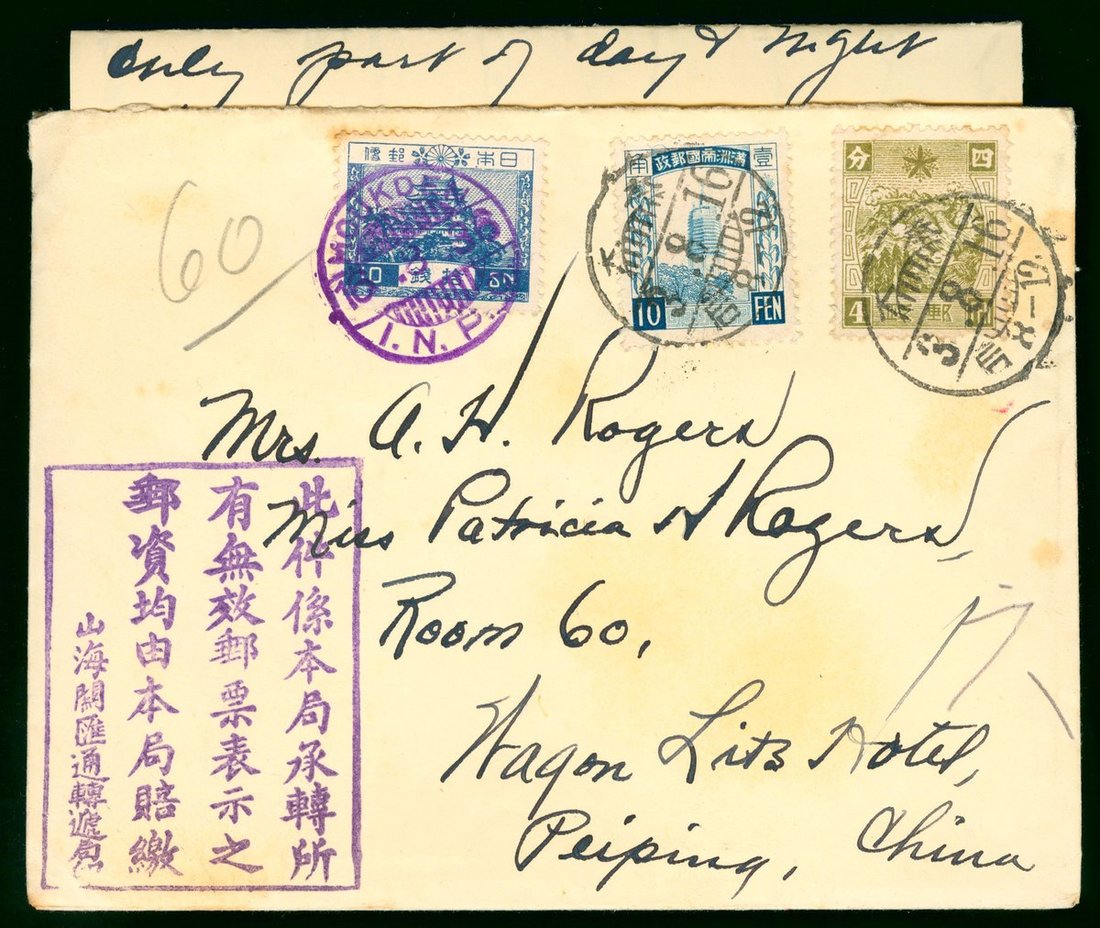 only part of day & night
60
日本郵便
10 拾錢 SN
MOUKDEN
I.N.P.
壹
滿洲帝國郵政
角
10 FEN
四
分
4 郵
3
8 16
3
8 16
Mrs. A. H. Rogers
Miss Patricia A Rogers,
Room 60,
Wagon Lits Hotel,
Peiping, China
此件係本局承轉所
有無效郵票表示之
郵資均由本局賠繳
山海關匯通轉遞局